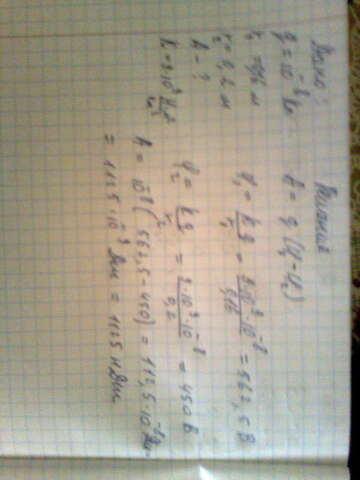 Дано:
q = 10⁻⁸ Кл
r₁ = 0,16 м
r₂ = 0,2 м
A - ?
K = 9·10⁹ Н·м²/Кл²
Решение
A = q (φ₁ - φ₂)
φ₁ = kq/r₁ = 9·10⁹·10⁻⁸/0,16 = 562,5 В
φ₂ = kq/r₂ = 9·10⁹·10⁻⁸/0,2 = 450 В
A = 10⁻⁸ (562,5 - 450) = 112,5·10⁻⁸ Дж =
= 1125·10⁻⁹ Дж = 1125 нДж